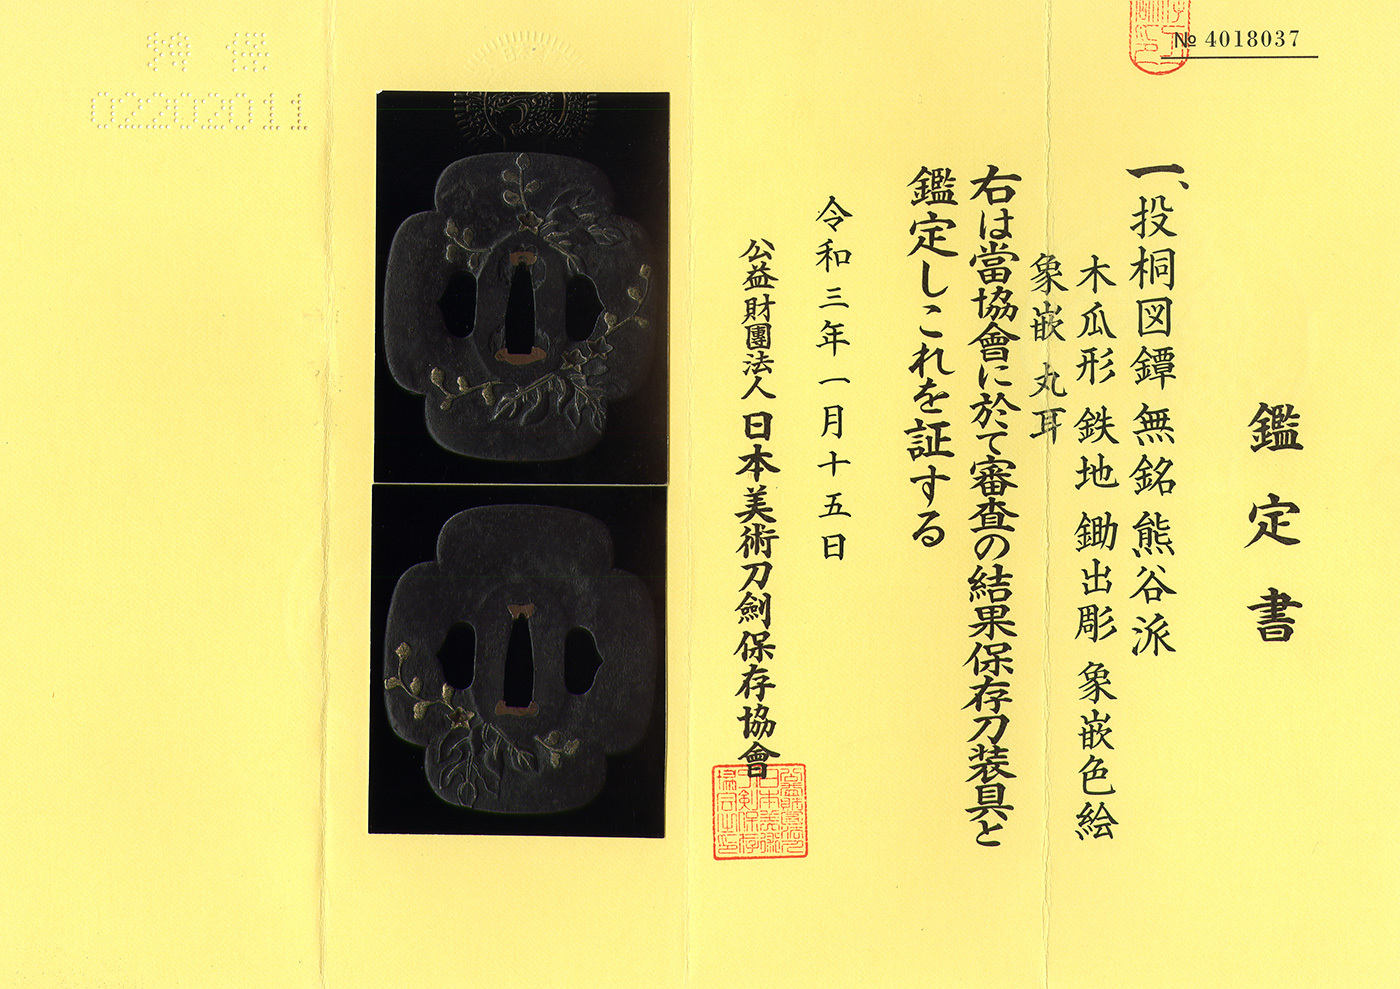 № 4018037
鑑定書
一、投桐図鐔 無銘 熊谷派
木瓜形 鉄地 鋤出彫 象嵌色絵
象嵌 丸耳
右は當協會に於て審査の結果保存刀装具と
鑑定しこれを証する
令和三年一月十五日
公益財團法人 日本美術刀劍保存協會
02202011